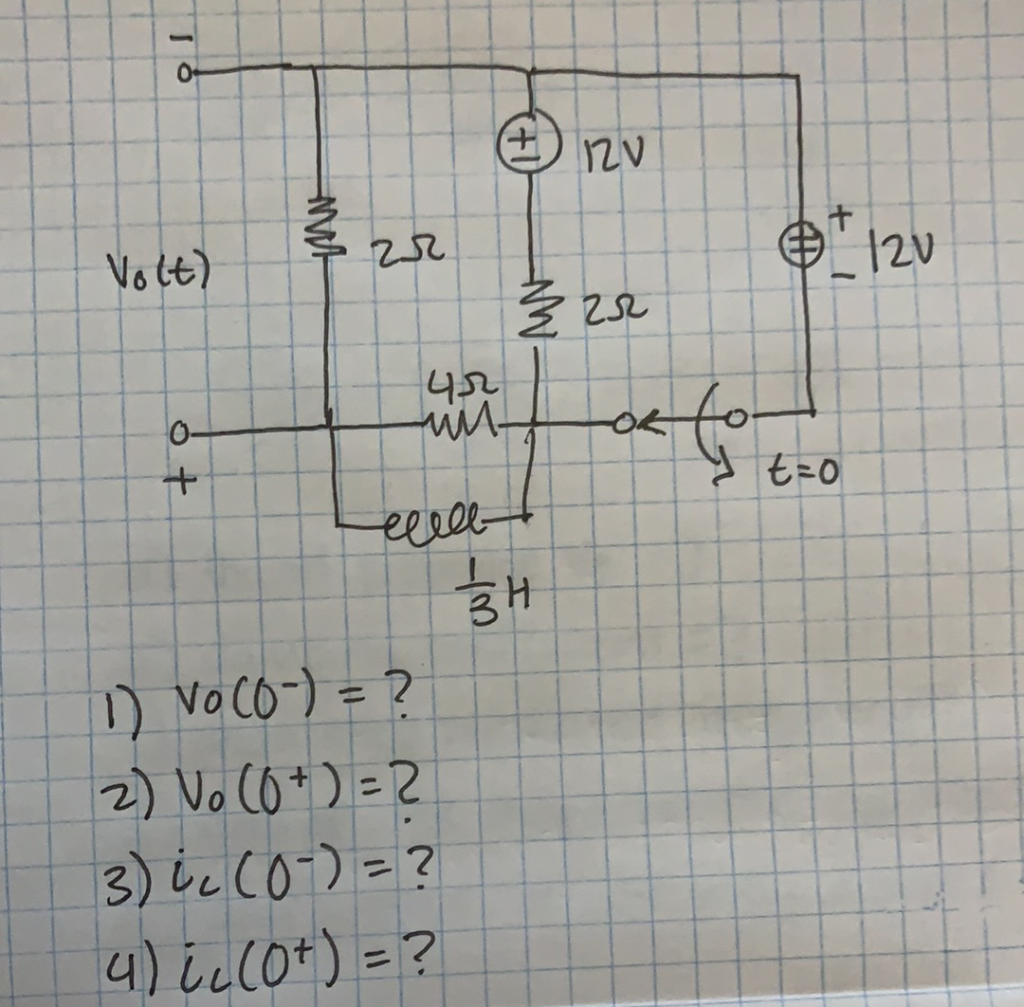 -
12V
+
2Ω
Vo(t)
2Ω
- 12V
4Ω
+
t=0
1/3 H
1) Vo(0-) = ?
2) Vo(0+) = ?
3) iL(0-) = ?
4) iL(0+) = ?